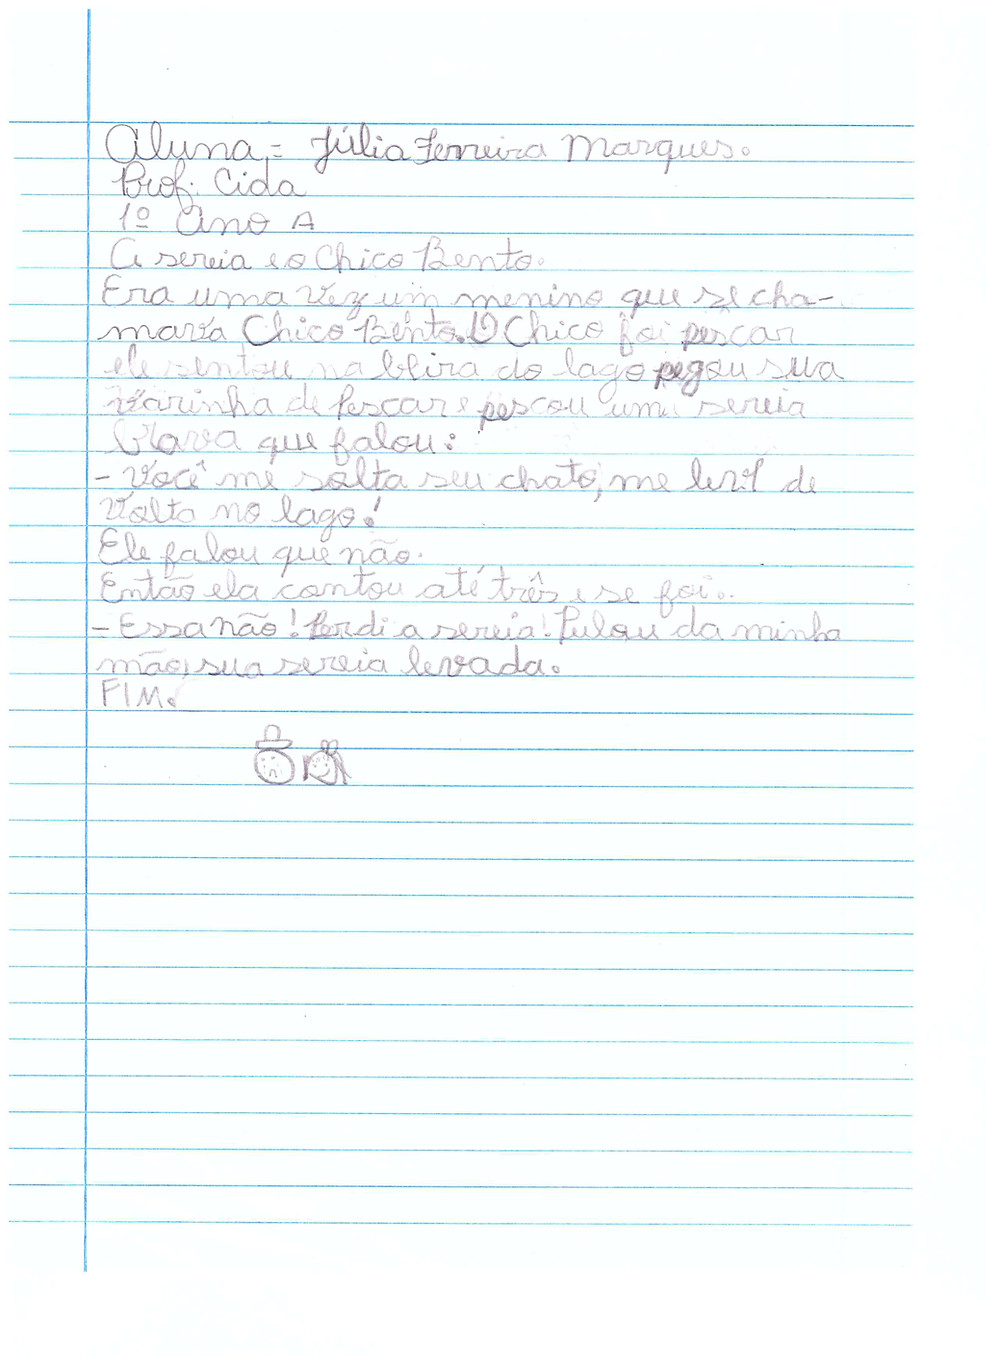 Aluna = Júlia Ferreira Marques.
Prof. Cida
1º Ano A
A sereia e o Chico Bento.
Era uma vez um menino que se cha-
mava Chico Bento. O Chico foi pescar
ele sentou na beira do lago pegou sua
varinha de pescar e pescou uma sereia
brava que falou:
- Você me solta seu chato, me leva de
volta no lago!
Ele falou que não.
Então ela contou até três e se foi..
- Essa não! Perdi a sereia! Pulou da minha
mão, sua sereia levada.
FIM.